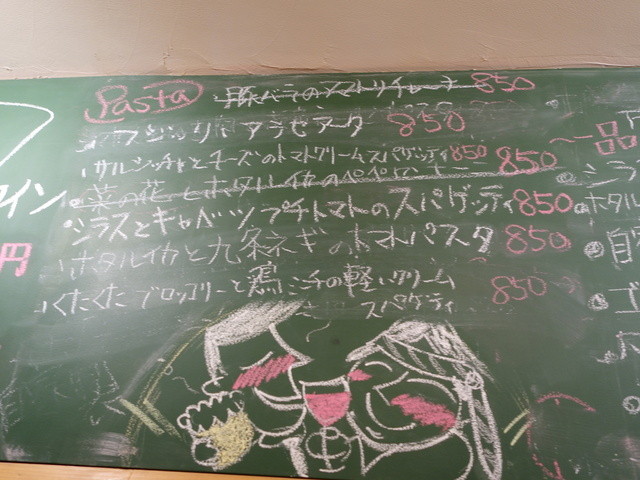 Pasta
豚バラのアマトリチャーナ 850
アラビアータ 850
サルシッチャとチーズのトマトクリームスパゲッティ 850
・菜の花とホタルイカのペペロンチーノ 850
・シラスとキャベツ プチトマトのスパゲッティ 850
ホタルイカと九条ネギのトマトパスタ 850
・くたくたブロッコリーと鶏ミンチの軽いクリーム
スパゲティ 850
イン
円
〜一品
シラ
ホタル
自
ゴ